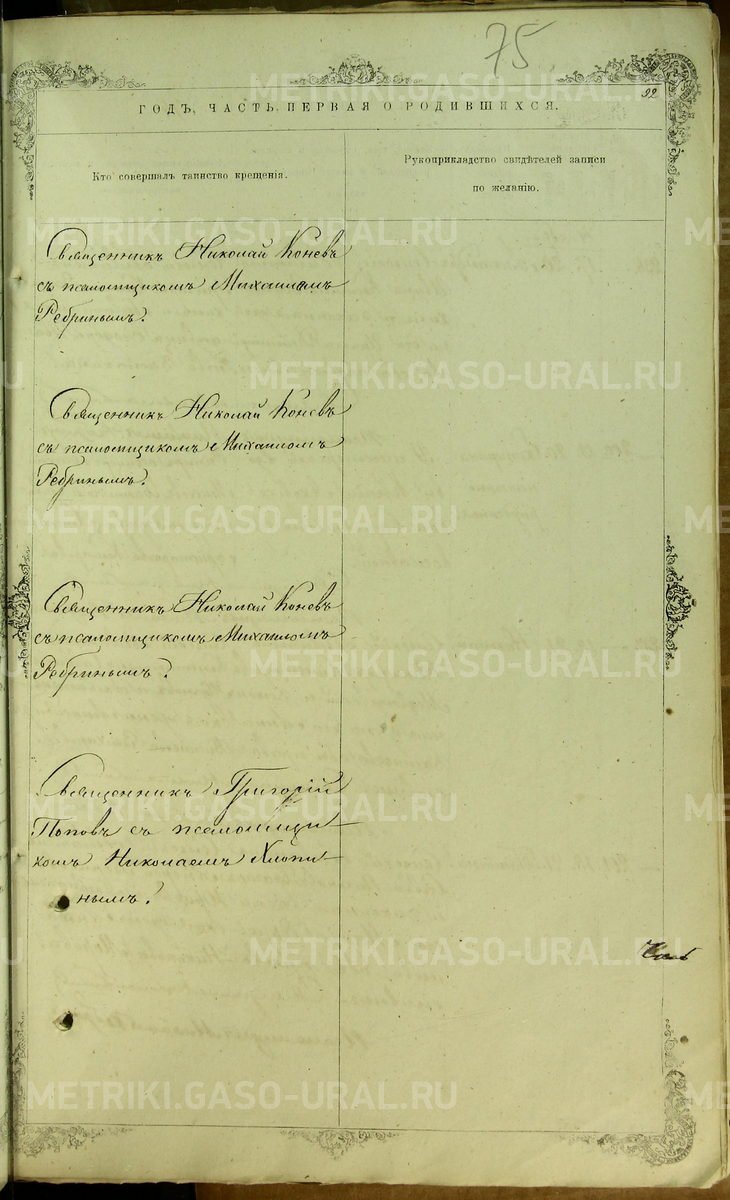 75
92
ГОДЪ, ЧАСТЬ ПЕРВАЯ О РОДИВШИХСЯ.
Кто совершалъ таинство крещенія.
Рукоприкладство свидѣтелей записи
по желанію.
Священникъ Николай Коневъ
съ псаломщикомъ Михаиломъ
Ребринымъ.
Священникъ Николай Коневъ
съ псаломщикомъ Михаиломъ
Ребринымъ.
Священникъ Николай Коневъ
съ псаломщикомъ Михаиломъ
Ребринымъ.
Священникъ Григорій
Поповъ съ псаломщи-
комъ Николаемъ Хлопи-
нымъ.
METRIKI.GASO-URAL.RU